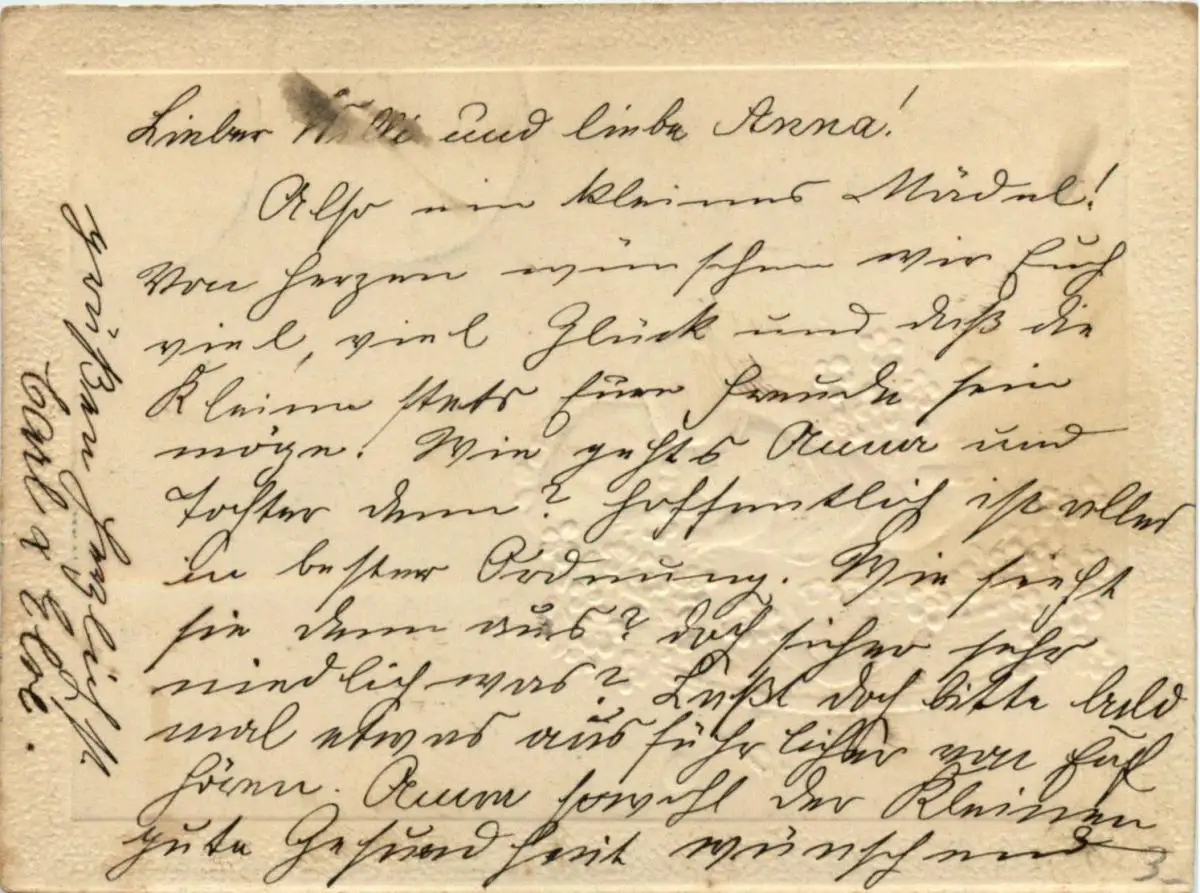 Lieber Willi und liebe Anna!
Also ein kleines Mädel!
Von Herzen wünschen wir Euch
viel, viel Glück und daß die
Kleine stets Eure Freude sein
möge. Wie gehts Anna und
Tochter denn? Hoffentlich ist alles
in bester Ordnung. Wie sieht
sie denn aus? doch sicher sehr
niedlich was? Laßt doch bitte bald
mal etwas ausführlicher von Euch
hören. Anna sowohl der Kleinen
gute Gesundheit wünschend
grüßen herzlichst
Carl u Else.
3-